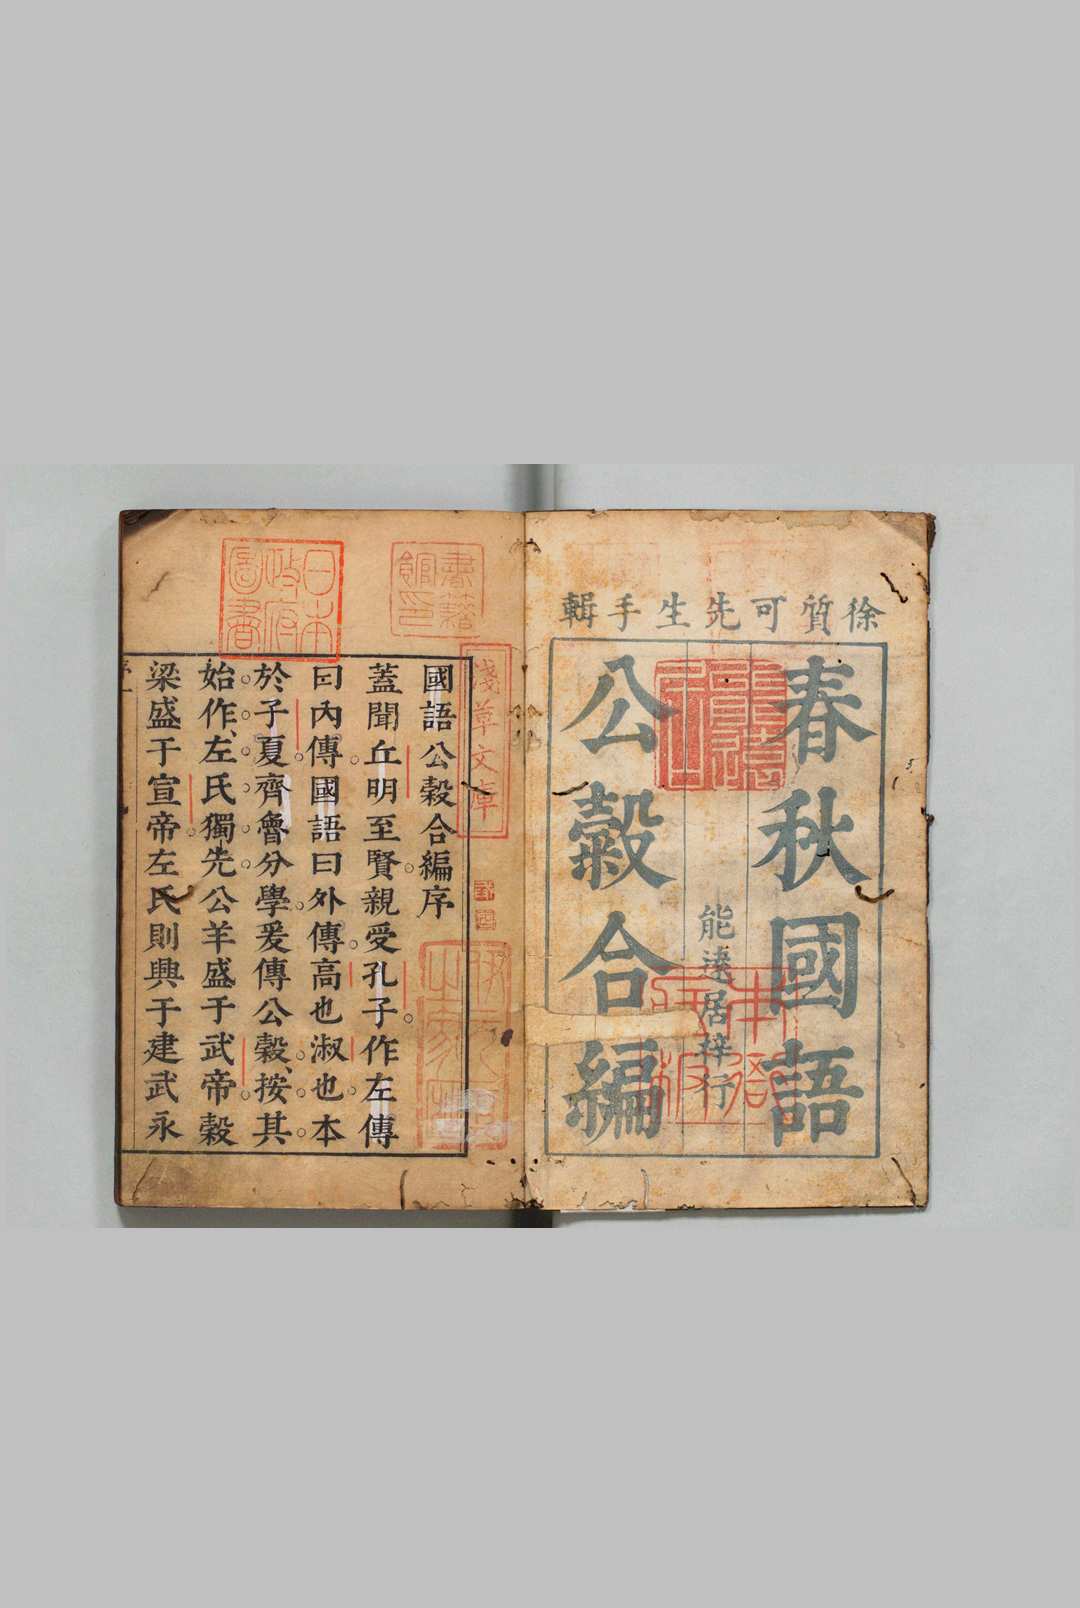 徐質可先生手輯
春秋國語
公穀合編
能遠居梓行
國語公穀合編序
蓋聞丘明至賢親受孔子作左傳
曰內傳國語曰外傳高也淑也本
於子夏齊魯分學爰傳公穀按其
始作左氏獨先公羊盛于武帝穀
梁盛于宣帝左氏則興于建武永
日本
政府
圖書
書籍
館印
淺草文庫